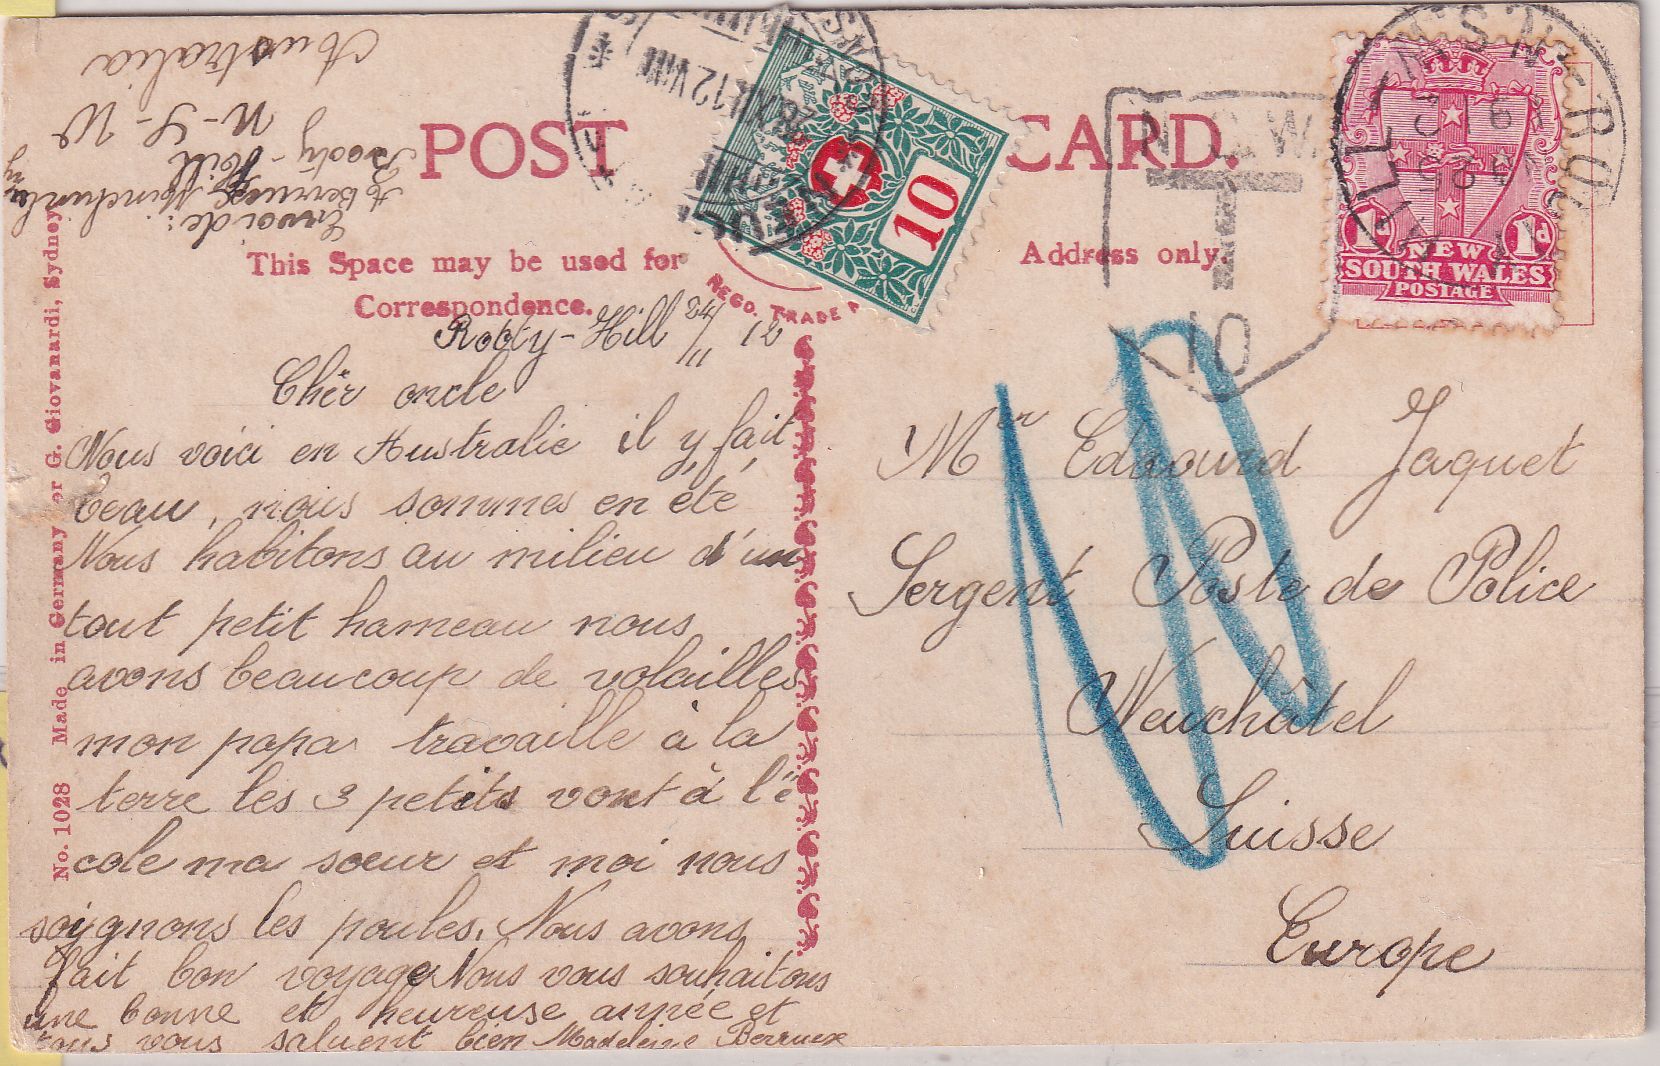 Australia
N-S-W
Rooty-Hill
A Berruex
Envoi de:
POST CARD.
This Space may be used for
Correspondence.
Address only.
REGD. TRADE
No. 1028 Made in Germany for G. Giovanardi, Sydney
10
N.S.W.
T
10
NEW
SOUTH WALES
POSTAGE
1d 1d
XII 12 VIII
Rooty-Hill 24/11 12
Chèr oncle
Nous voici en Australie il y fait
beau, nous sommes en été
Nous habitons au milieu d'un
tout petit hameau nous
avons beaucoup de volailles
mon papa travaille à la
terre les 3 petits vont à l'é
cole ma sœur et moi nous
soignons les poules. Nous avons
fait bon voyage Nous vous souhaitons
une bonne et heureuse année et
tous vous saluent bien Madeleine Berruex
Mr Edouard Jaquet
Sergent Poste de Police
Neuchâtel
Suisse
Europe